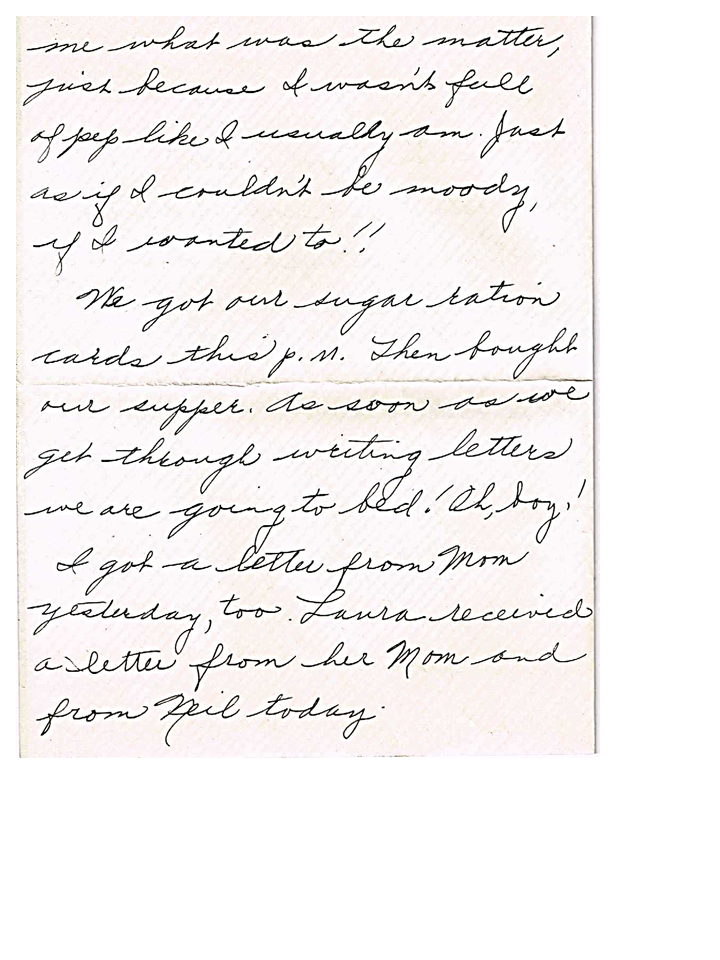 me what was the matter,
just because I wasn't full
of pep like I usually am. Just
as if I couldn't be moody,
if I wanted to!!
We got our sugar ration
cards this p.m. Then bought
our supper. As soon as we
get through writing letters
we are going to bed! Oh, boy!
I got a letter from Mom
yesterday, too. Laura received
a letter from her Mom and
from Neil today.